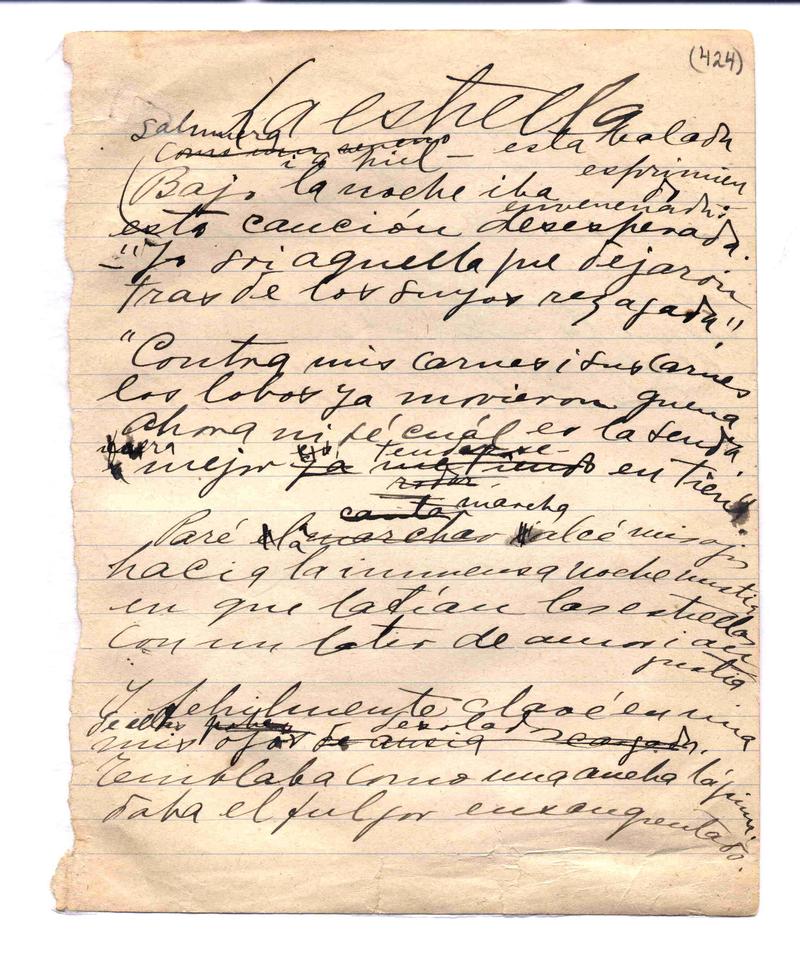 (424)
La estrella
salmuera
i a hiel — esta balada
esprimien
Bajo la noche iba
envenenada:
esta canción desesperada.
—"Yo soi aquella que dejaron
tras de los suyos rezagada"
"Contra mis carnes i sus carnes
los lobos ya movieron guerra
ahora ni sé cuál es la senda
tenderse
mejor en tierra"
rodar
canta marcha
Paré la marchar alcé mis ojos
hacia la inmensa noche mustia
en que latían las estrellas
con un latir de amor i angustia
Y febrilmente clavé en una
de ellas desolada
mis ojos de ansia cargada.
Temblaba como una ancha lágrima.
daba el fulgor ensangrentado.